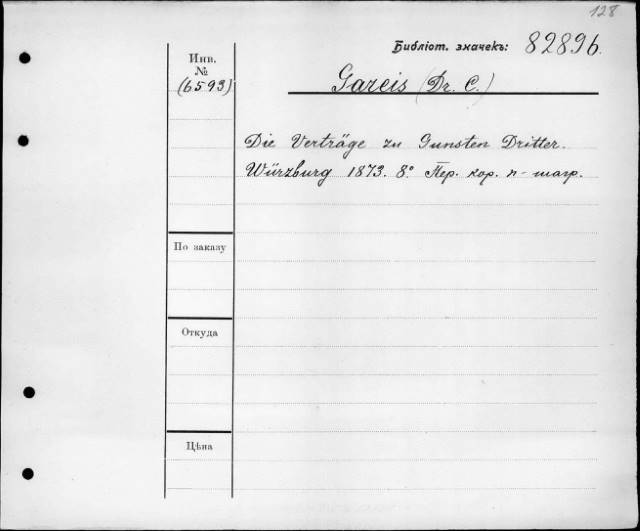 128
Библіот. значекъ: 82896.
Инв.
№
(6593)
Gareis (Dr. C.)
Die Verträge zu Gunsten Dritter.
Würzburg 1873. 8° Пер. кор. п-шагр.
По заказу
Откуда
Цѣна